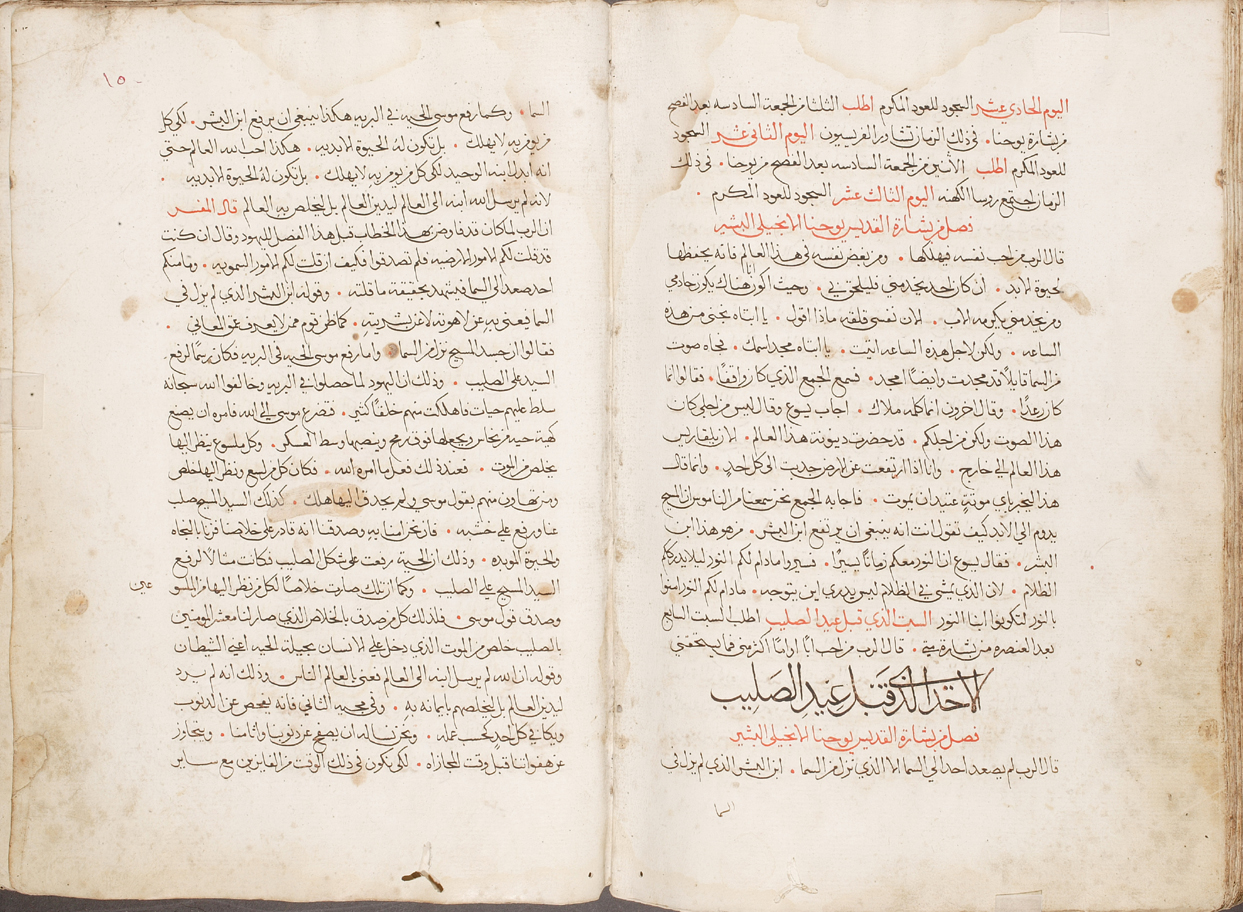 اليوم الحادي عشر السجود للعود المكرم اطلب الثلثا من الجمعة السادسه بعد الفصح
من بشارة يوحنا. في ذلك الزمان تشاور الفريسيون اليوم الثاني عشر السجود
للعود المكرم اطلب الاثنين من الجمعة السادسه بعد الفصح من يوحنا. في ذلك
الزمان اجتمع روسا الكهنه اليوم الثالث عشر السجود للعود المكرم
فصل من بشارة القديس يوحنا الانجيلي البشير
قال الرب من احب نفسه فيهلكها. ومن بغض نفسه في هذا العالم فانه يحفظها
لحيوة الابد. ان كان احد يخدمني فليلحق بي. وحيث اكون هناك يكون خادمي
ومن يخدمني يكرمه الاب. الان نفسي قلقه ماذا اقول. يا ابتاه نجني من هذه
الساعه. ولكن لاجل هذه الساعه اتيت. يا ابتاه مجد اسمك. فجاه صوت
من السما قايلاً قد مجدت وايضًا امجد. فسمع الجمع الذي كان واقفًا. فقالوا انما
كان رعدًا. وقال اخرون انما كلمه ملاك. اجاب يسوع وقال ليس من اجلي كان
هذا الصوت ولكن من اجلكم. قد حضرت دينونة هذا العالم. الان يلقا ريس
هذا العالم الى خارج. وانا اذا ارتفعت عن الارض جذبت الي كل احدٍ. وانما قال
هذا ليخبر باي موتةٍ عتيد ان يموت. فاجابه الجمع نحن سمعنا من الناموس ان المسيح
يدوم الى الابد كيف تقول انت انه ينبغي ان يرتفع ابن البشر. من هو هذا ابن
البشر. فقال يسوع ان النور معكم زمانًا يسيرًا. فسيروا ما دام لكم النور ليلا يدرككم
الظلام. لان الذي يمشي في الظلام ليس يدري اين يتوجه. ما دام لكم النور امنوا
بالنور لتكونوا ابنا النور السبت الذي قبل عيد الصليب اطلب السبت السابع
بعد العنصره من بشارة متى. قال الرب من احب ابًا او امًا اكثر مني فما يستحقني
الاحد الذي قبل عيد الصليب
فصل من بشارة القديس يوحنا الانجيلي البشير
قال الرب لم يصعد احد الى السما الا الذي نزل من السما. ابن البشر الذي لم يزل في
السما
١٥
السما. وكما رفع موسى الحيه في البريه هكذا ينبغي ان يرفع ابن البشر. لكي كل
من يومن به لا يهلك. بل تكون له الحيوة الابديه. هكذا احب الله العالم حتى
انه ابدل ابنه الوحيد لكي كل من يومن به لا يهلك. بل تكون له الحيوة الابديه.
لانه لم يرسل الله ابنه الى العالم ليدين العالم بل ليخلص به العالم قال المفسر
ان الرب لما كان قد فاوض بهذا الخطاب قبل هذا الفصل لليهود وقال ان كنت
قد قلت لكم الامور الارضيه فلم تصدقوا فكيف ان قلت لكم الامور السمويه. وما منكم
احد صعد الى السما فيشهد بحقيقة ما قلته. وقوله ابن البشر الذي لم يزل في
السما فيعني به عن لاهوته لا عن بشريتهِ. كما ظن قوم ممن لا يعرف غمق المعاني.
فقالوا ان جسد المسيح نزل من السما. واما رفع موسى الحيه في البريه فكان رسمًا لرفع
السيد على الصليب. وذلك ان اليهود لما حصلوا في البريه وخالفوا الله سبحانه
سلط عليهم حيات فاهلكت منهم خلقًا كثير. فتضرع موسى الى الله فامره ان يصنع
كهية حيه من نحاس ويجعلها فوق رمح وينصبها وسط العسكر. وكل ملسوع ينظر اليها
يخلص من الموت. فعند ذلك فعل ما امره الله. فكان كل من لسع ونظر اليها خلص
ومن تهاون منهم بقول موسى ولم يحدق اليها هلك. كذلك السيد المسيح صلب
عنا ورفع على خشبه. فان نحن امنا به وصدقنا انه قادر على خلاصنا فزنا بالنجاه
والحيوة الموبده. وذلك ان الحية رفعت على شكل الصليب فكانت مثالاً لرفع
السيد المسيح على الصليب. وكما ان تلك صارت خلاصًا لكل من نظر اليها من الملسو
عين
وصدق قول موسى. فلذلك كل من صدق بالخلاص الذي صار لنا معشر المومنين
بالصليب خلص من الموت الذي دخل على الانسان بحيلة الحيه اعني الشيطان
وقوله ان الله لم يرسل ابنه الى العالم يعني بالعالم الناس. وذلك انه لم يرد
ليدين العالم بل ليخلصهم بايمانه به. وفي مجيه الثاني فانه يفحص عن الذنوب
ويكافي كل احدٍ بحسب عمله. ونحن نساله ان يصفح عن ذنوبنا واثامنا. ويتجاوز
عن هفواتنا قبل وقت المجازاه. لكي نكون في ذلك الوقت من الفايزين مع ساير